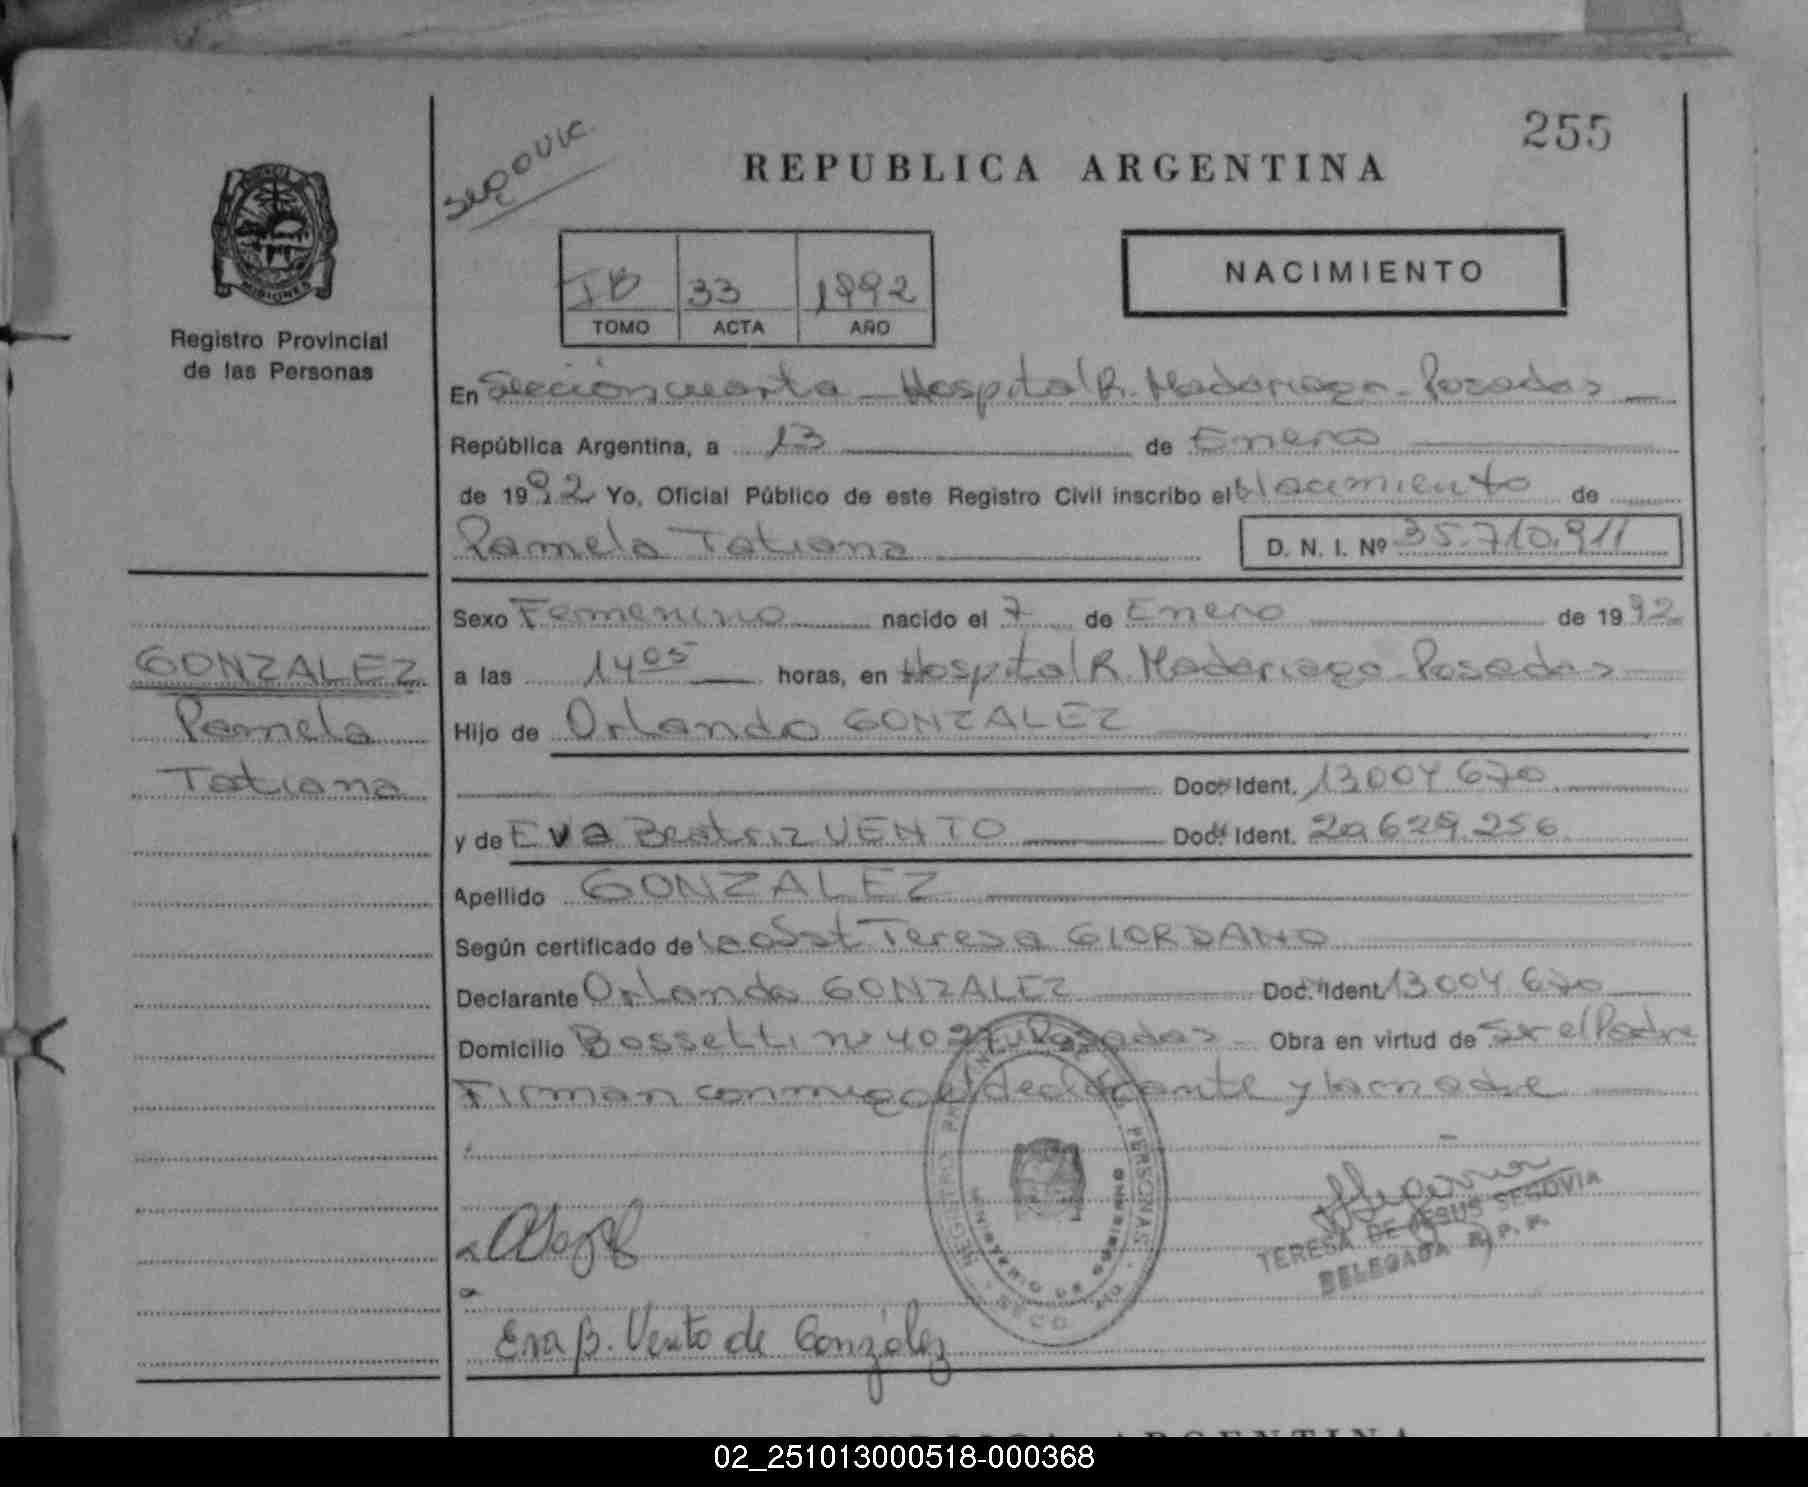 255
Segovia
REPUBLICA ARGENTINA
MISIONES
Registro Provincial
de las Personas
IB 33 1992
TOMO ACTA AÑO
NACIMIENTO
En Sección cuarta - Hospital R. Madariaga - Posadas
República Argentina, a 13 de Enero
de 1992 Yo, Oficial Público de este Registro Civil inscribo el Nacimiento de
Pamela Tatiana D. N. I. Nº 35.710.911
Sexo Femenino nacido el 7 de Enero de 1992
a las 14 05 horas, en Hospital R. Madariaga - Posadas
Hijo de Orlando GONZALEZ
Doc. Ident. 13004670
y de Eva Beatriz VENTO Doc. Ident. 20.629.256
Apellido GONZALEZ
Según certificado de la obst Teresa GIORDANO
Declarante Orlando GONZALEZ Doc. Ident. 13004670
Domicilio Bossetti nº 4027 Posadas Obra en virtud de Ser el Padre
Firman conmigo el declarante y la madre
GONZALEZ
Pamela
Tatiana
TERESA DE JESUS SEGOVIA
DELEGADA R. P. P.
Eva B. Vento de González
REPUBLICA ARGENTINA
02_251013000518-000368